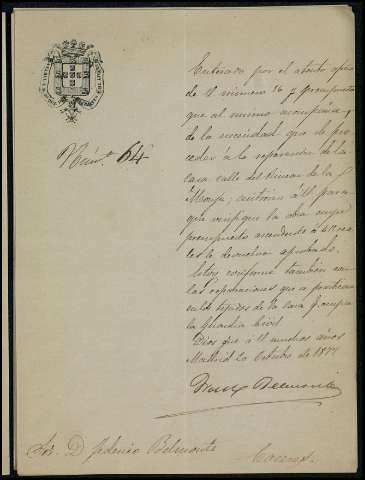 Enterado por el atento oficio
de V. número 56 y presupuesto
que al mismo acompaña,
de la necesidad que de pro-
ceder á la reparacion de la
casa calle del Rincon de la
Monja; autorizo á V. para
que verifique la obra cuyo
presupuesto asciende á 611 rea-
les le devuelvo aprobado.
Estoy conforme tambien con
las reparaciones que se practican
en los tejados de la casa q. ocupa
la Guardia Civil.
Dios gue. á V. muchos años
Madrid 20 Octubre de 1877
Num.º 64.
Sr. D. Federico Belmonte
Cáceres.